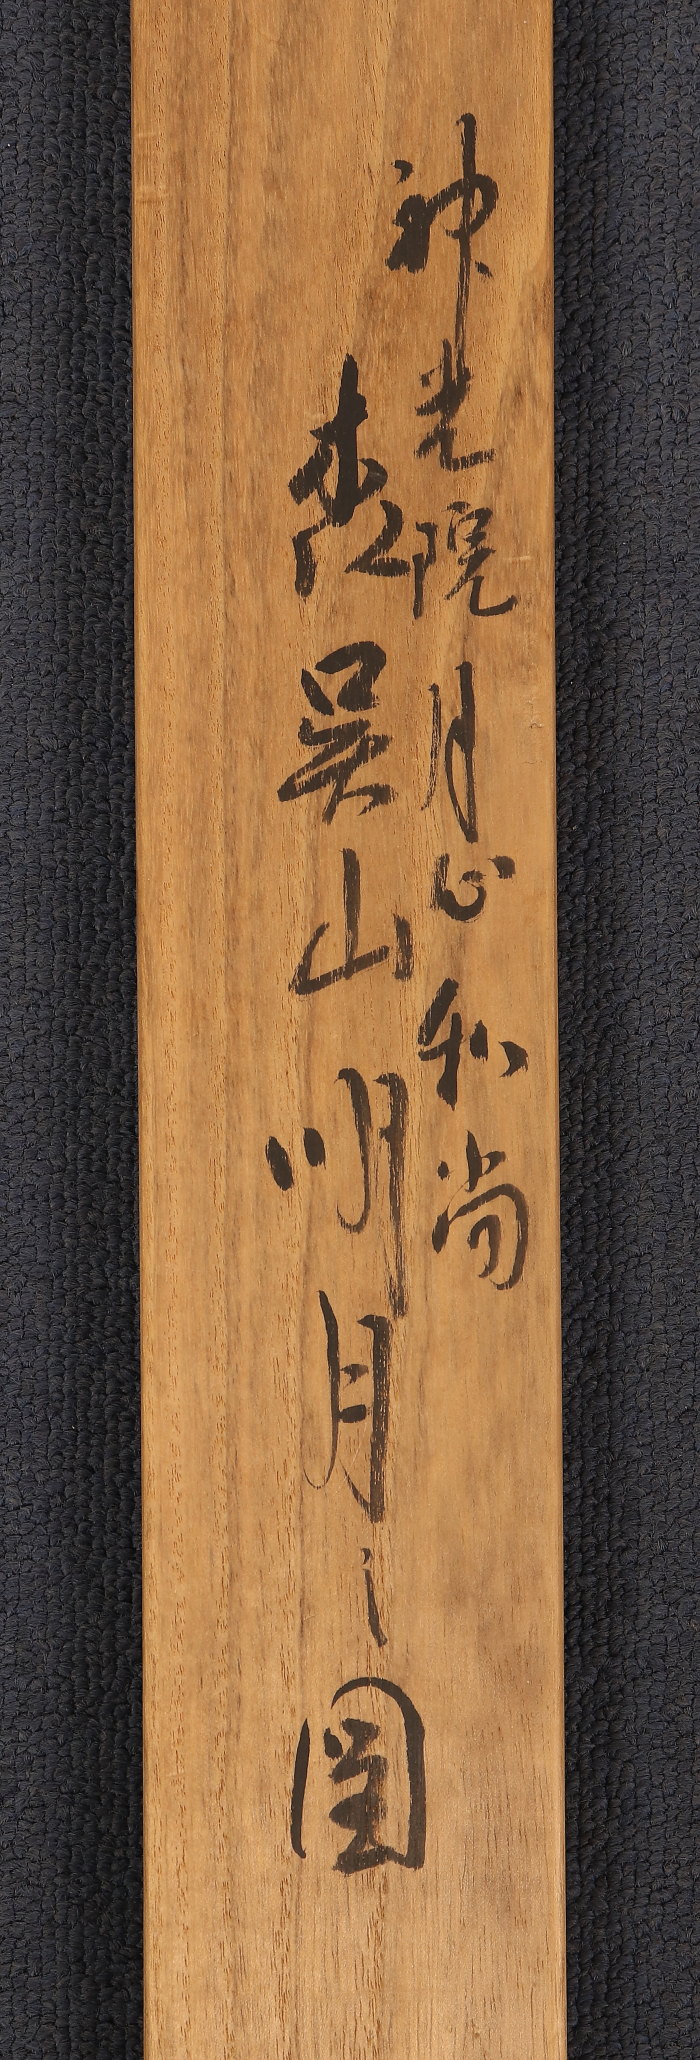 神光院月心和尚
賛呉山明月之図